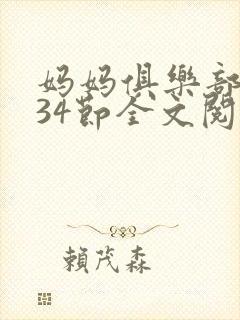 妈妈俱樂部
34節全文閱
賴茂森